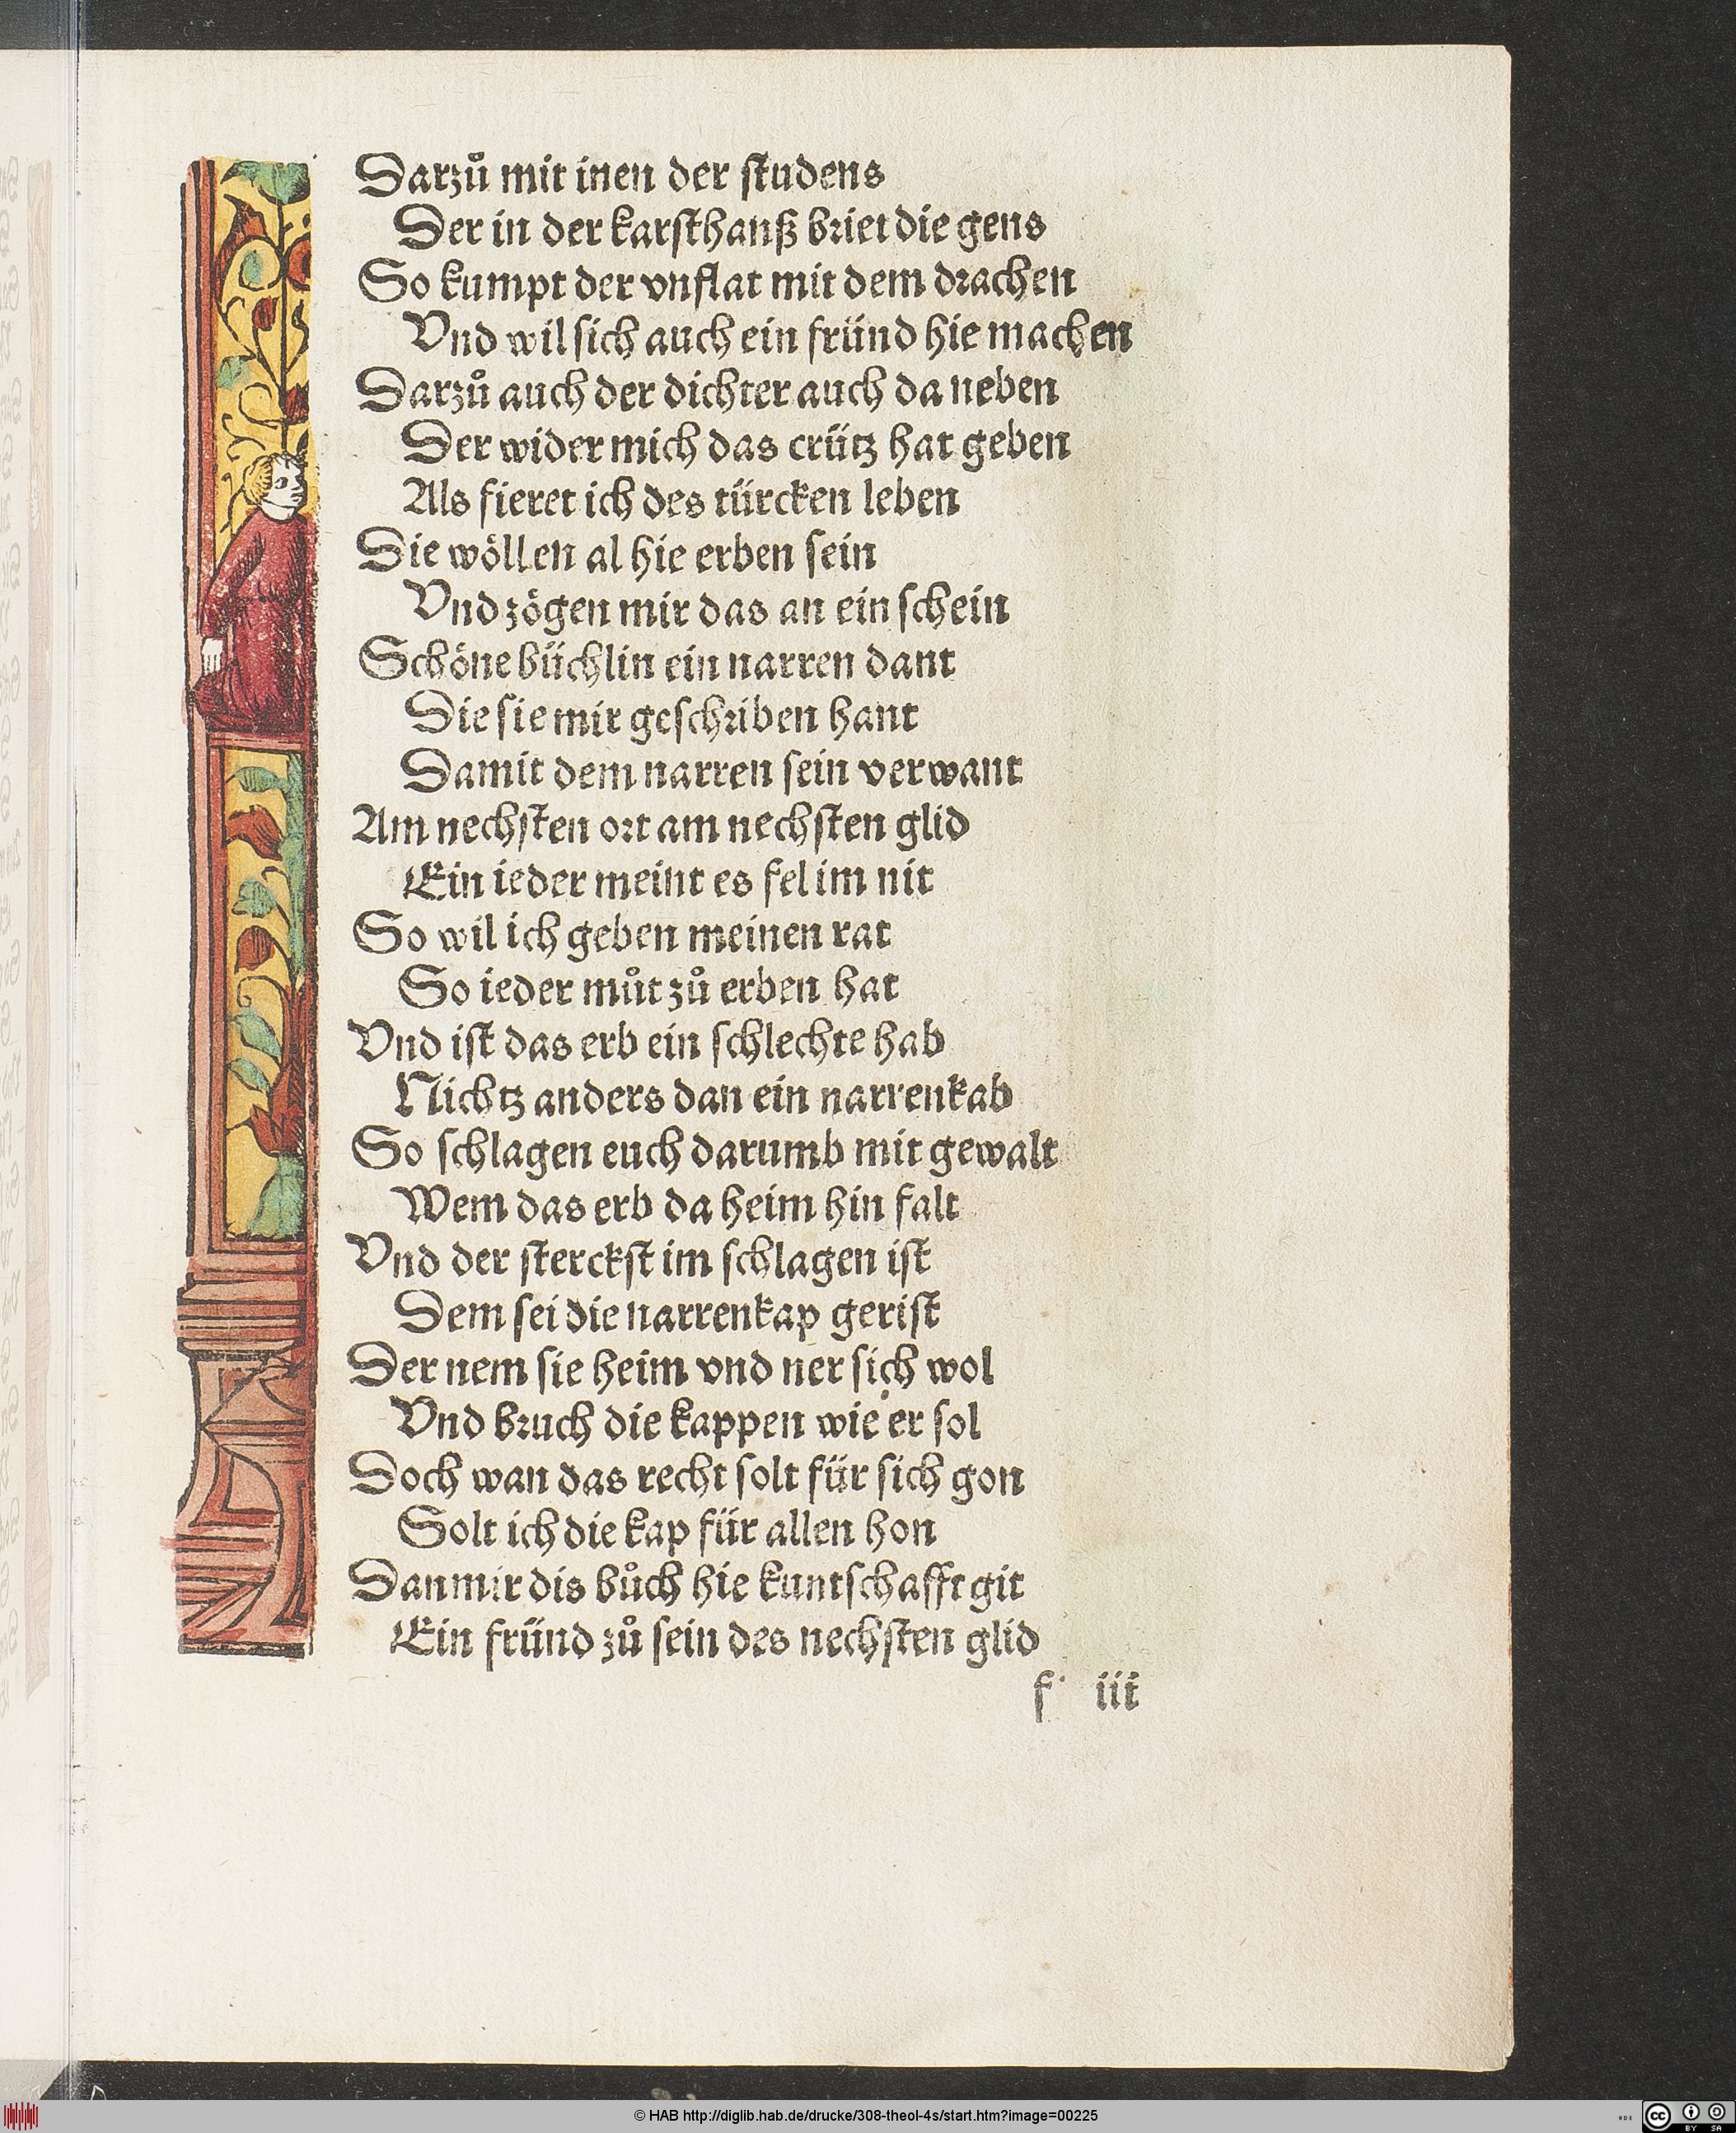 Darzů mit inen der ſtudens
Der in der karſthanß briet die gens
So kumpt der vnflat mit dem drachen
Vnd wil ſich auch ein fründ hie machen
Darzů auch der dichter auch da neben
Der wider mich das crütz hat geben
Als fieret ich des türcken leben
Die wöllen al hie erben ſein
Vnd zögen mir das an ein ſchein
Schöne büchlin ein narren dant
Die ſie mir geſchriben hant
Damit dem narren ſein verwant
Am nechſten ort am nechſten glid
Ein ieder meint es fel im nit
So wil ich geben meinen rat
So ieder můt zů erben hat
Vnd iſt das erb ein ſchlechte hab
Nichtz anders dan ein narrenkab
So ſchlagen euch darumb mit gewalt
Wem das erb da heim hin falt
Vnd der ſterckſt im ſchlagen iſt
Dem ſei die narrenkap geriſt
Der nem ſie heim vnd ner ſich wol
Vnd bruch die kappen wie er ſol
Doch wan das recht ſolt für ſich gon
Solt ich die kap für allen hon
Dan mir dis bůch hie kuntſchafft git
Ein fründ zů ſein des nechſten glid
f iii
© HAB http://diglib.hab.de/drucke/308-theol-4s/start.htm?image=00225
cc BY SA